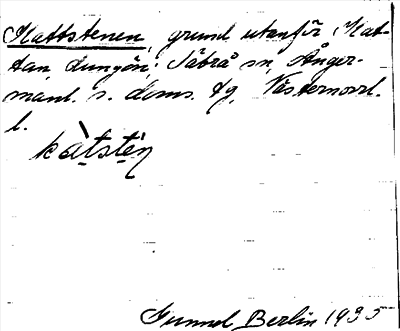 Kattstenen, grund utanför Kat-
tan, Lungön; Säbrå sn, Ånger-
manl. s. doms. tg, Västernorrl.
l.
kàtstèn
Gunnel Berlin 1935